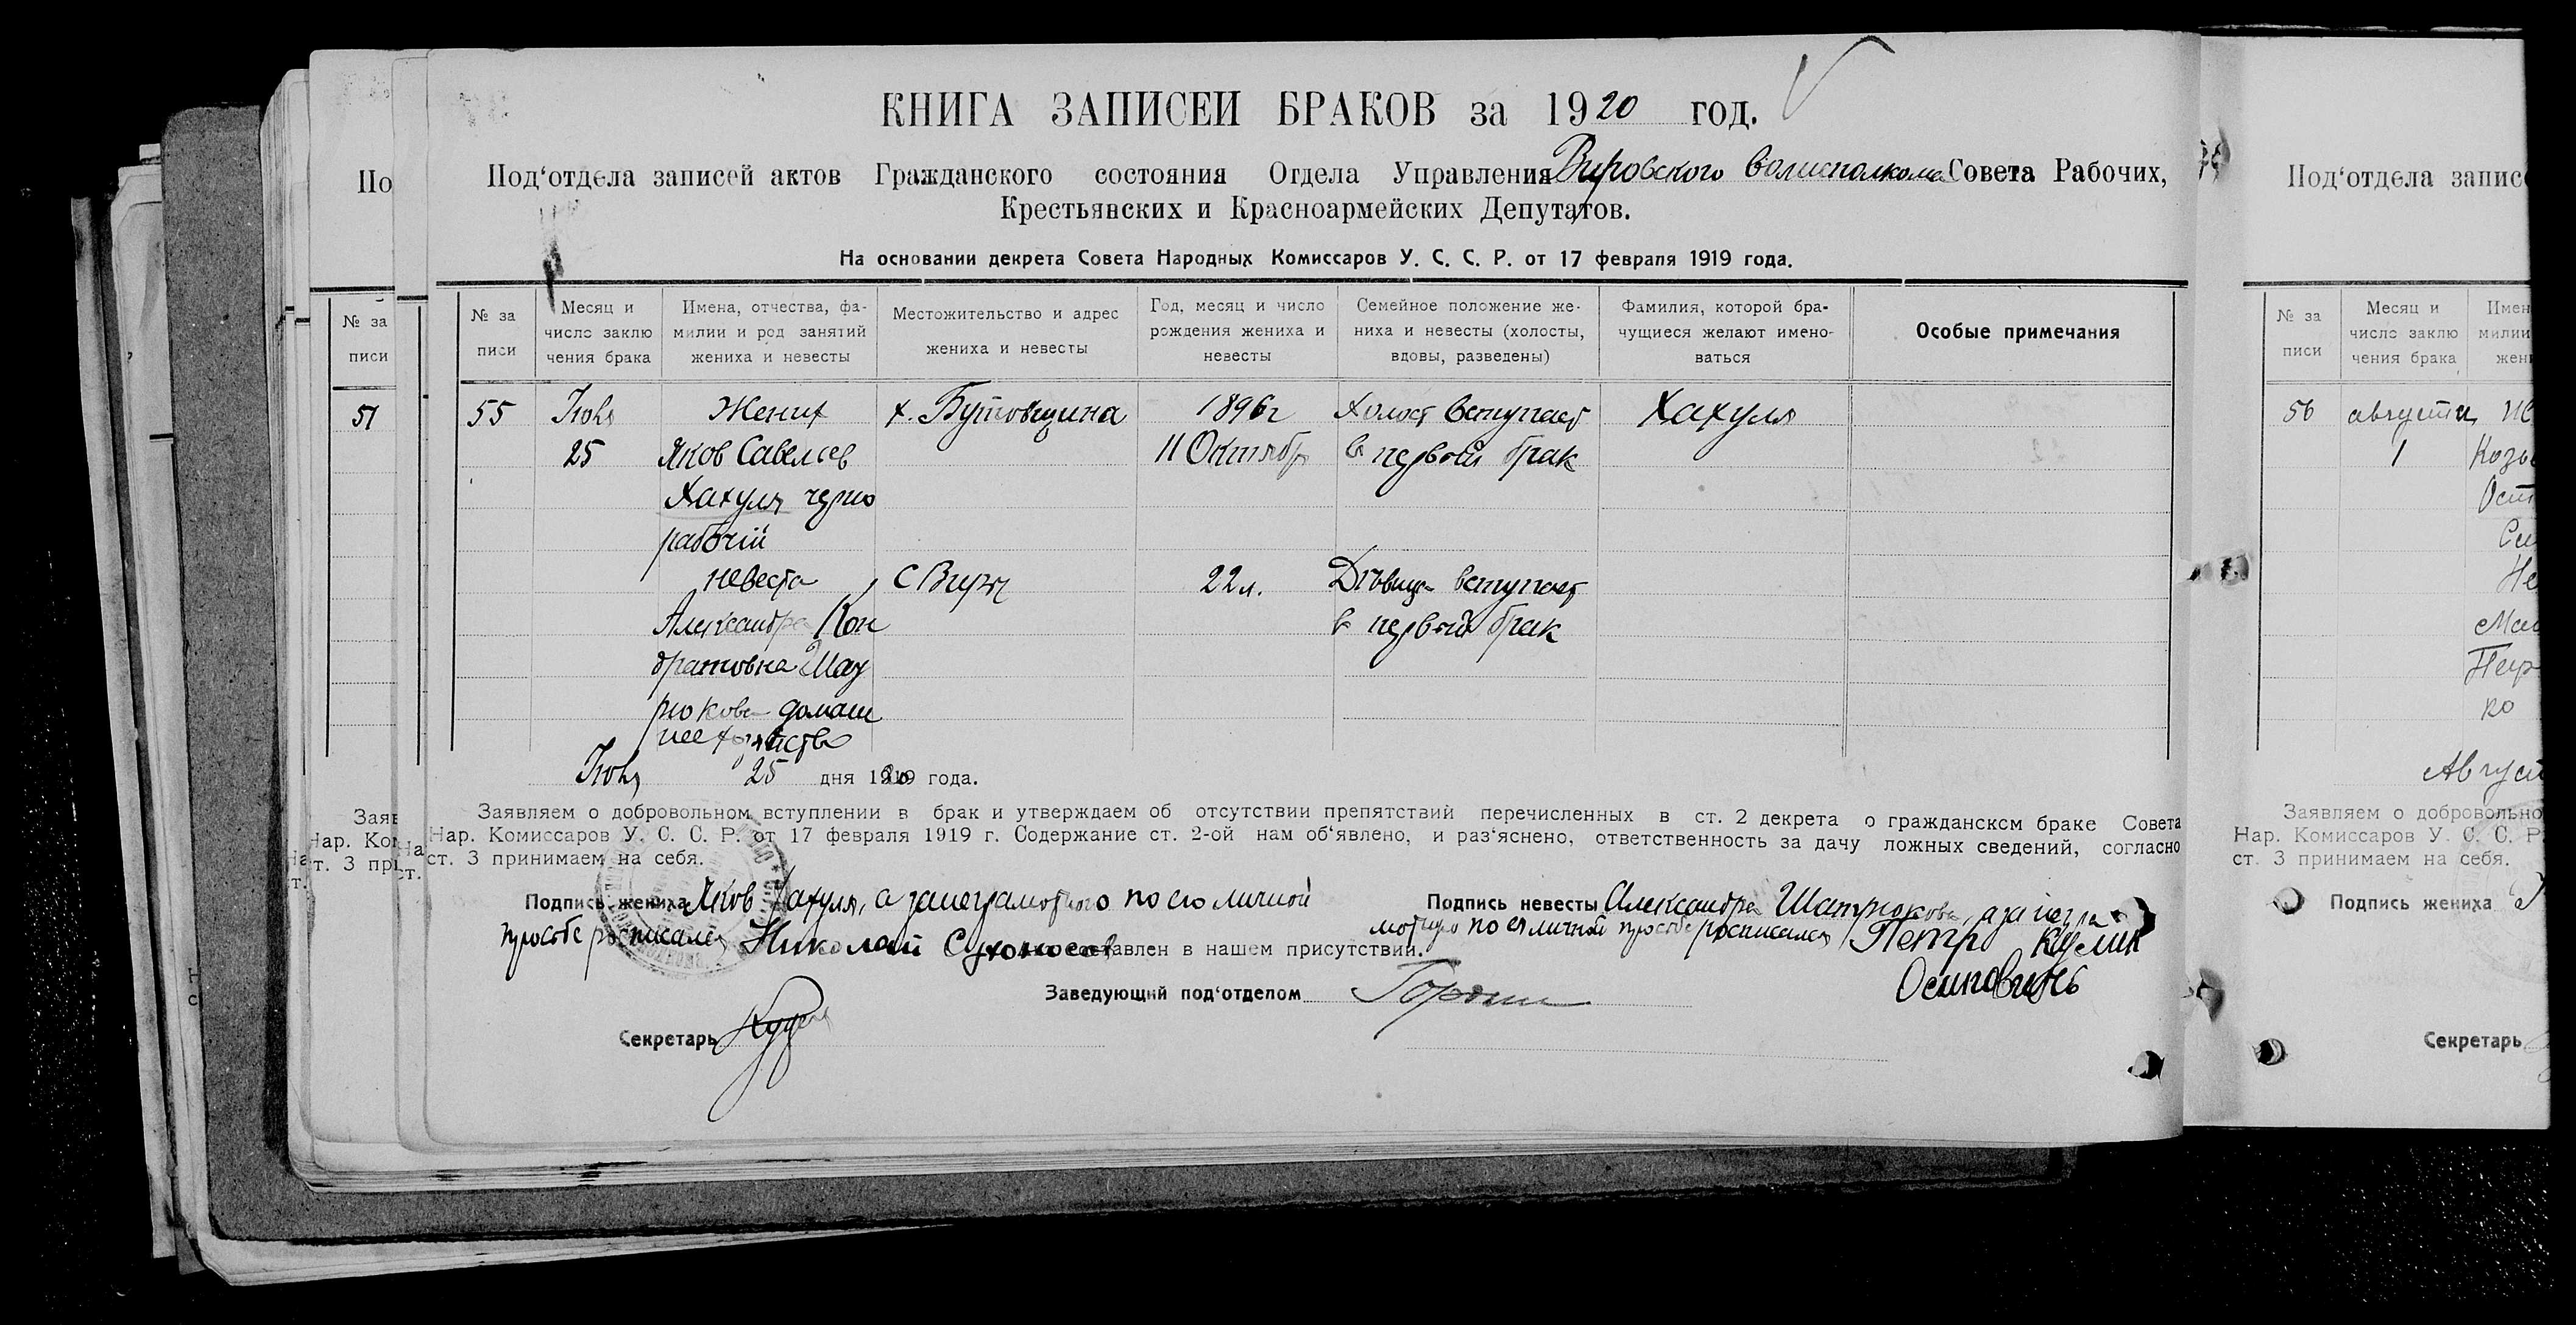 КНИГА ЗАПИСЕЙ БРАКОВ за 1920 год.
Под‘отдела записей актов Гражданского состояния Отдела Управления Вировского волисполкома Совета Рабочих,
Крестьянских и Красноармейских Депутатов.
На основании декрета Совета Народных Комиссаров У. С. С. Р. от 17 февраля 1919 года.
№ за писи
Месяц и число заклю чения брака
Имена, отчества, фа- милии и род занятий жениха и невесты
Местожительство и адрес жениха и невесты
Год, месяц и число рождения жениха и невесты
Семейное положение же- ниха и невесты (холосты, вдовы, разведены)
Фамилия, которой бра- чущиеся желают имено- ваться
Особые примечания
55 Жених х. Бутовщина 1896г Холост вступает Хахуля
25 Яков Савельев 11 Октябр в первый брак
Хахуля черно
рабочій
невеста С Виры 22 л. Дѣвица вступает
Александра Кон в первый брак
дратовна Шат
рюкова домаш
нее хозяйство
25 дня 1920 года.
Заявляем о добровольном вступлении в брак и утверждаем об отсутствии препятствий перечисленных в ст. 2 декрета о гражданском браке Совета
Нар. Комиссаров У. С. С. Р. от 17 февраля 1919 г. Содержание ст. 2-ой нам об‘явлено, и раз‘яснено, ответственность за дачу ложных сведений, согласно
ст. 3 принимаем на себя.
Подпись жениха Яков Хахуля, а занеграмотного по его личной
просьбе росписался Николай Сухоносов
Подпись невесты Александра Шатрюкова, а за негра
мотную по ея личной просьбе росписался Петр Кулик
Осипович
составлен в нашем присутствии.
Заведующий под‘отделом
Секретарь
По
№ за писи
51
Заяв
Нар. Ком
ст. 3 при
Под‘отдела записе
№ за писи
Месяц и число заклю чения брака
Имен милии жени
56 августа
1
Заявляем о добровольно
Нар. Комиссаров У. С. С. Р.
ст. 3 принимаем на себя.
Подпись жениха
Секретарь